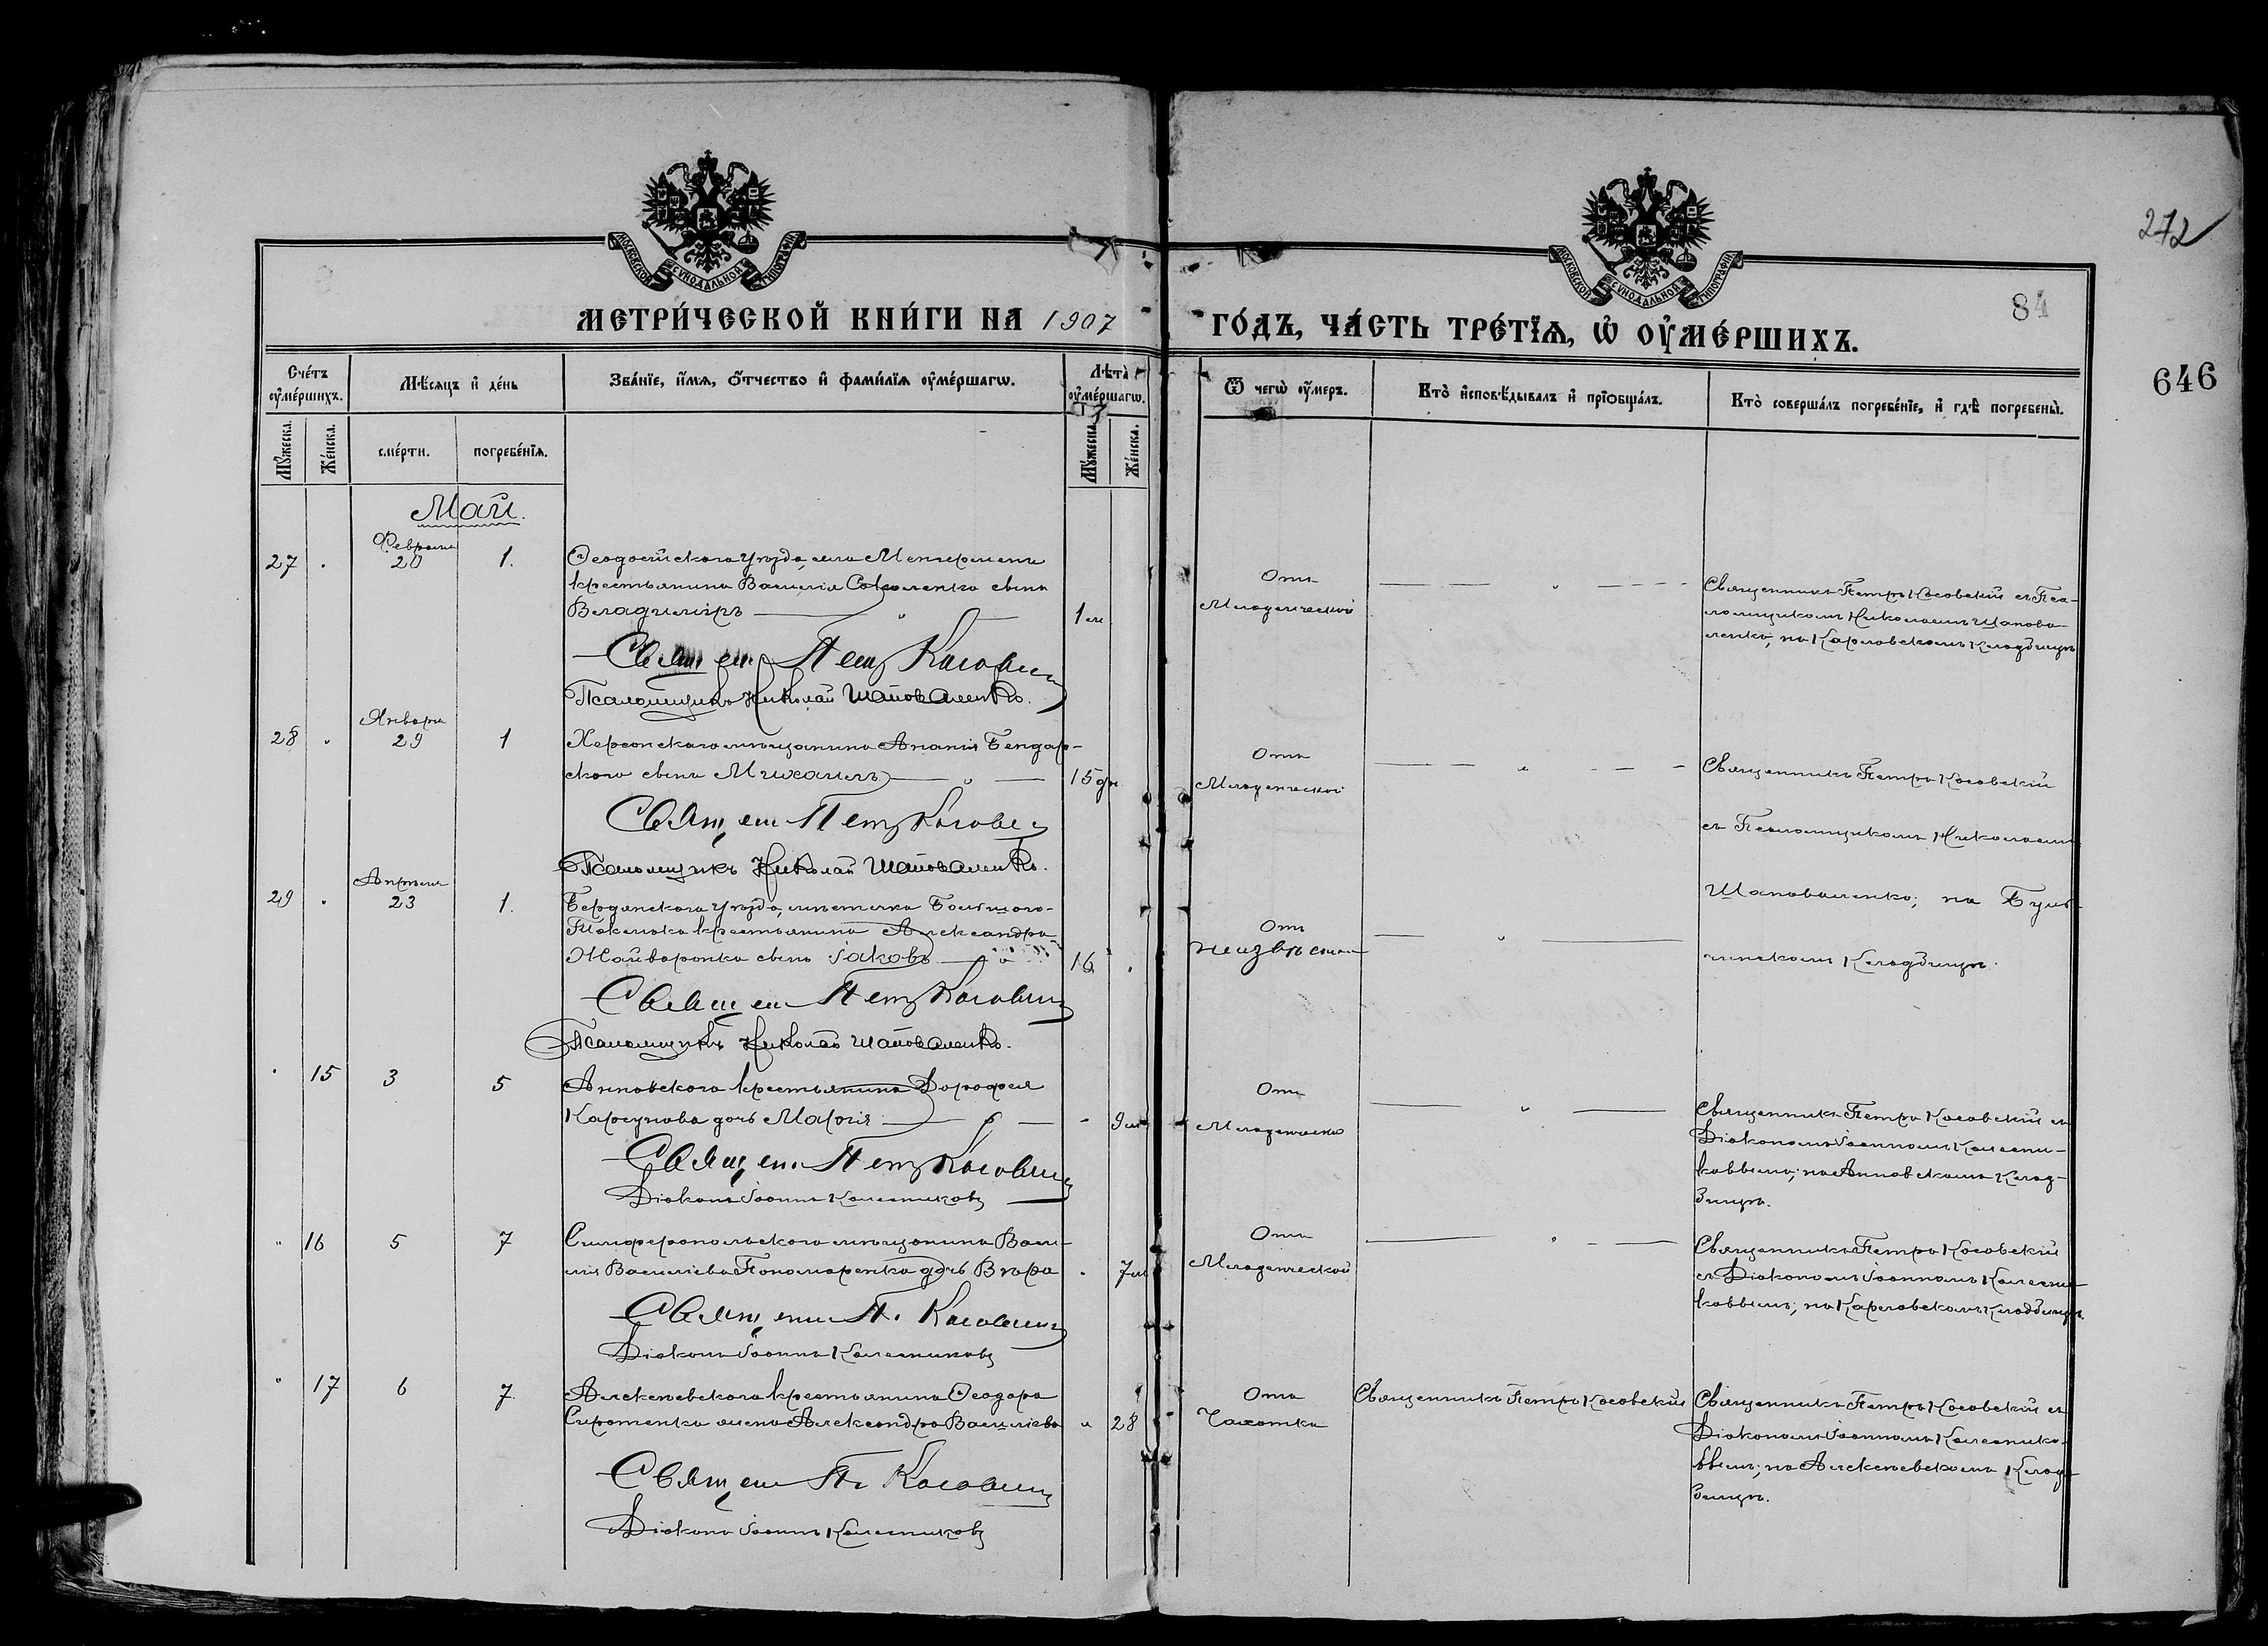 272
МОСКОВСКОЙ СѴНОДАЛЬНОЙ ТИПОГРАФІИ
МОСКОВСКОЙ СѴНОДАЛЬНОЙ ТИПОГРАФІИ
84
МЕТРИ́ЧЕСКОЙ КНИ́ГИ НА 1907 ГО́ДЪ, ЧА́СТЬ ТРЕ́ТІѦ, Ѡ҆ ОУ҆МЕ́РШИХЪ.
646
Сче́тъ оу҆ме́ршихъ.
Мѣ́сяцъ и҆ де́нь
Зва́нїе, и҆́мѧ, ѻ҆́тчество и҆ фами́лїѧ оу҆ме́ршагѡ.
Лѣ́та оу҆ме́ршагѡ.
Ѿ чегѡ̀ оу҆́меръ.
Кто̀ и҆сповѣ́дывалъ и҆ прїѻбща́лъ.
Кто̀ соверша́лъ погребе́нїе, и҆ гдѣ̀ погребены̀.
Мꙋ́жеска.
Же́нска.
сме́рти.
погребе́нїѧ.
Мꙋ́жеска.
Же́нска.
Май.
27 Февраля 20 1.
Ѳеодосійскаго Уѣзда, села
крестьянина Василія сынъ
Владиміръ 1 м
Священ Петръ Косовскій
Псаломщикъ Николай Шаповаленко.
Отъ
Младенческой
Священникъ Петръ Косовскій съ Пса-
ломщикомъ Николаемъ Шапова-
ленко, на Карловскомъ Кладбищѣ
28 Января 29 1
Херсонскаго мѣщанина Ананія Бендар-
скаго сынъ Михаилъ 15 дн.
Священ Петръ Косовскій
Псаломщикъ Николай Шаповаленко.
Отъ
Младенческой
Священникъ Петръ Косовскій
съ Псаломщикомъ Николаемъ
Шаповаленко; на
Кладбищѣ.
29 Апрѣля 23 1.
Бердянскаго Уѣзда, мѣстечка Большого-
Токмака крестьянина Александра
Жайворонка сынъ Іаковъ 16
Священ Петръ Косовскій
Псаломщикъ Николай Шаповаленко.
Отъ
неизвѣстн
15 3 5
Анновскаго крестьянина Дорофея
Карсунова дочь Марія 9 м
Священ Петръ Косовскій
Діаконъ Іоаннъ Колесниковъ
Отъ
Младенческ
Священникъ Петръ Косовскій съ
Діакономъ Іоанномъ Колесни-
ковымъ; на Анновскомъ Клад-
бищѣ.
16 5 7
Симферопольскаго мѣщанина Васи-
лія Василіева Пономаренка дочь Вѣра 7 м
Священ П. Косовскій
Діаконъ Іоаннъ Колесниковъ
Отъ
Младенческой
Священникъ Петръ Косовскій
съ Діакономъ Іоанномъ Колесни-
ковымъ; на Карловскомъ Кладбищѣ.
17 6 7
Алексѣевскаго крестьянина Ѳеодора
Сиротенка жена Александра Василіева 28
Священ П. Косовскій
Діаконъ Іоаннъ Колесниковъ
Отъ
Чахотки
Священникъ Петръ Косовскій
Священникъ Петръ Косовскій съ
Діакономъ Іоанномъ Колеснико-
вымъ; на Алексѣевскомъ Клад-
бищѣ.